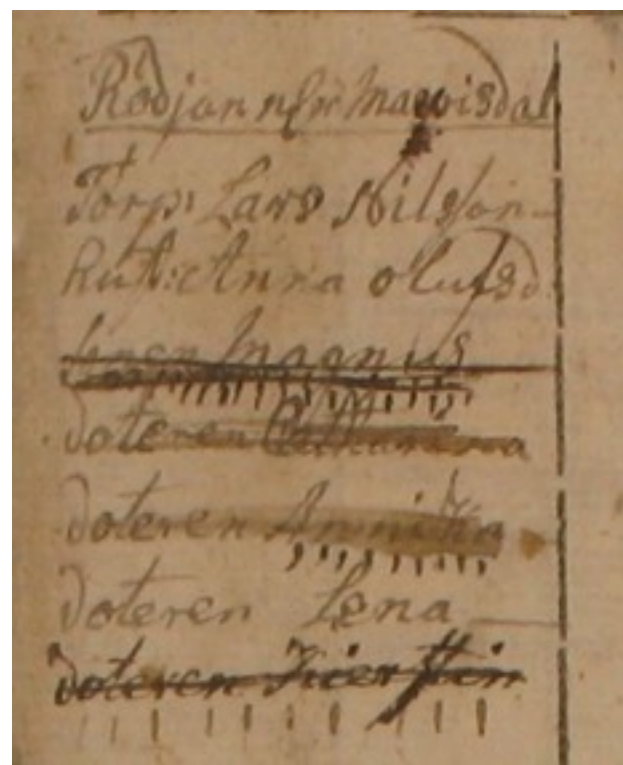 Torp: Lars Nilsson
Hust: Anna Olufsd:
Sonen Magnus
doteren Catharina
doteren Annika
doteren Lena
doteren Kierstin